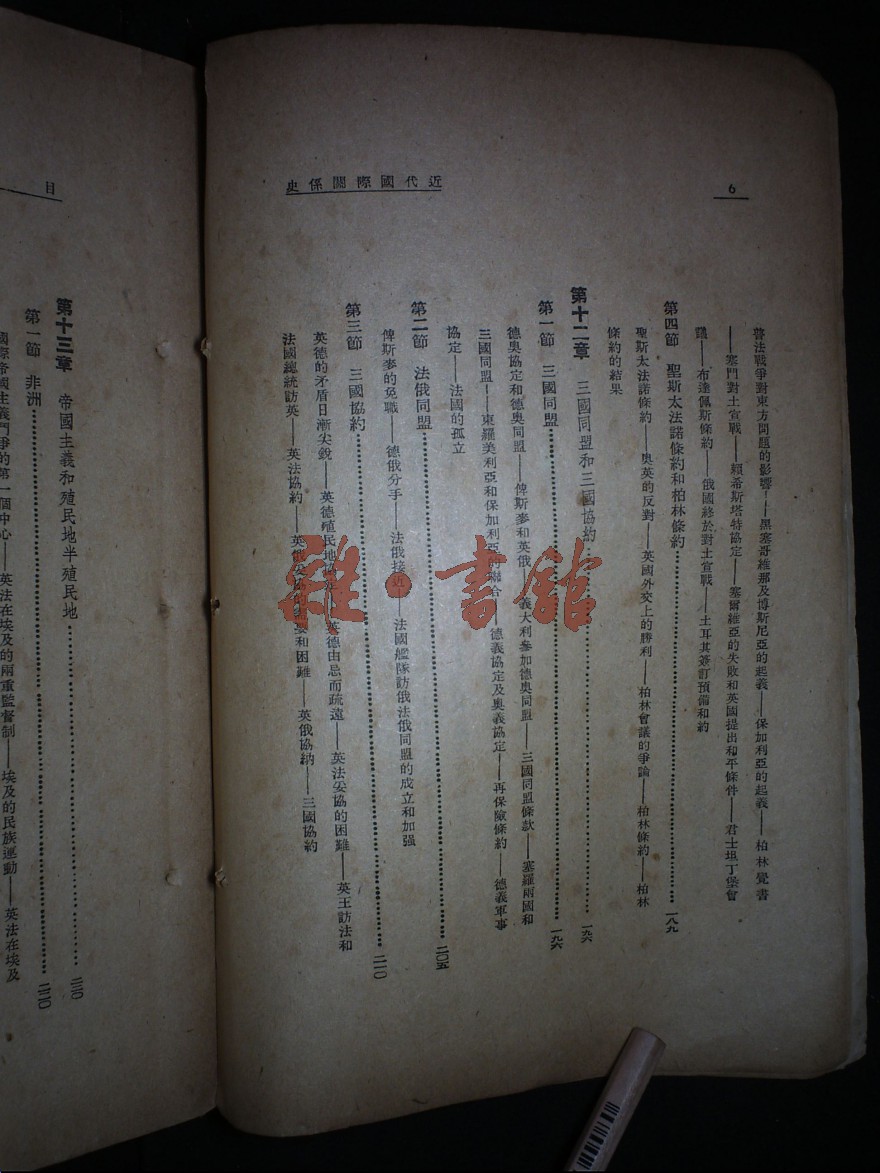 6
近代國際關係史
普法戰爭對東方問題的影響——黑塞哥維那及博斯尼亞的起義——保加利亞的起義——柏林覺書
——塞門對土宣戰——賴希斯塔特協定——塞爾維亞的失敗和英國提出和平條件——君士坦丁堡會
議——布達佩斯條約——俄國終於對土宣戰——土耳其簽訂預備和約
第四節 聖斯太法諾條約和柏林條約……一八九
聖斯太法諾條約——奧英的反對——英國外交上的勝利——柏林會議的爭論——柏林條約——柏林
條約的結果
第十二章 三國同盟和三國協約……一九六
第一節 三國同盟……一九六
德奧協定和德奧同盟——俾斯麥和英俄——義大利參加德奧同盟——三國同盟條款——塞羅兩國和
三國同盟——東羅美利亞和保加利亞的聯合——德義協定及奧義協定——再保險條約——德義軍事
協定——法國的孤立
第二節 法俄同盟……二〇五
俾斯麥的免職——德俄分手——法俄接近——法國艦隊訪俄法俄同盟的成立和加强
第三節 三國協約……二一〇
英德的矛盾日漸尖銳——英德殖民地協定——英德由忌而疏遠——英法妥協的困難——英王訪法和
法國總統訪英——英法協約——英俄妥協的需要和困難——英俄協約——三國協約
目
第十三章 帝國主義和殖民地半殖民地……二二〇
第一節 非洲……二二〇
國際帝國主義鬥爭的第一個中心——英法在埃及的兩重監督制——埃及的民族運動——英法在埃及
雜·書館